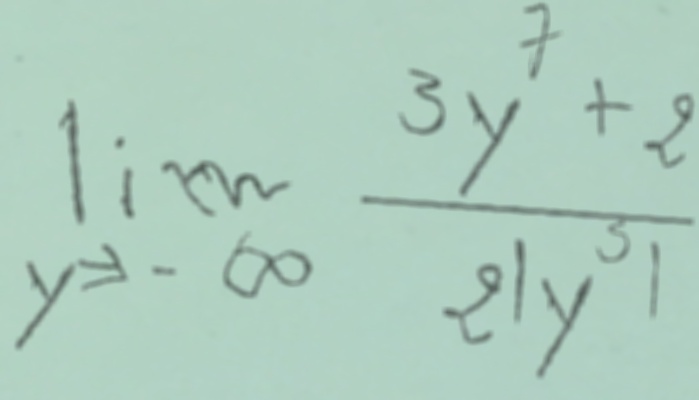 lim_{y→-∞} \frac{3y^7+2}{2|y^3|}